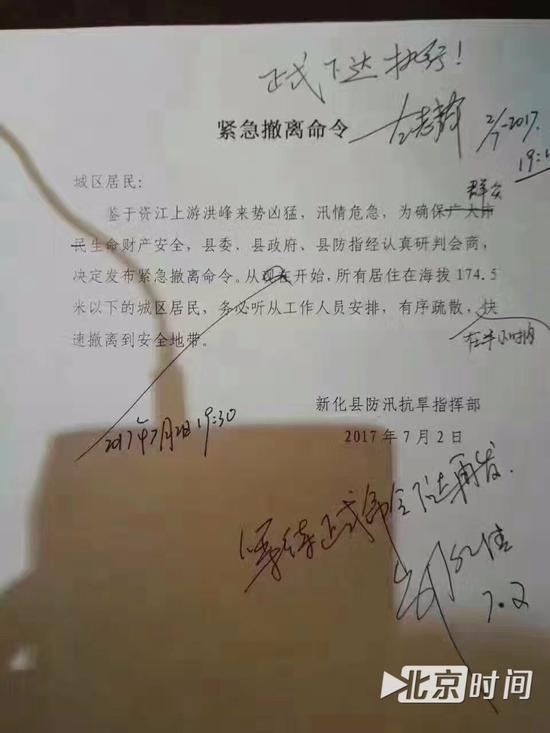 正式下达执行!
紧急撤离命令
2/7-2017.
19:
群众
城区居民:
鉴于资江上游洪峰来势凶猛,汛情危急,为确保广大市
民生命财产安全,县委、县政府、县防指经认真研判会商,
决定发布紧急撤离命令。从现在开始,所有居住在海拔 174.5
米以下的城区居民,务必听从工作人员安排,有序疏散,快
速撤离到安全地带。
在半小时内
2017年7月2日19:30
新化县防汛抗旱指挥部
2017 年 7 月 2 日
等待正式命令下达再发.
7.2
北京时间